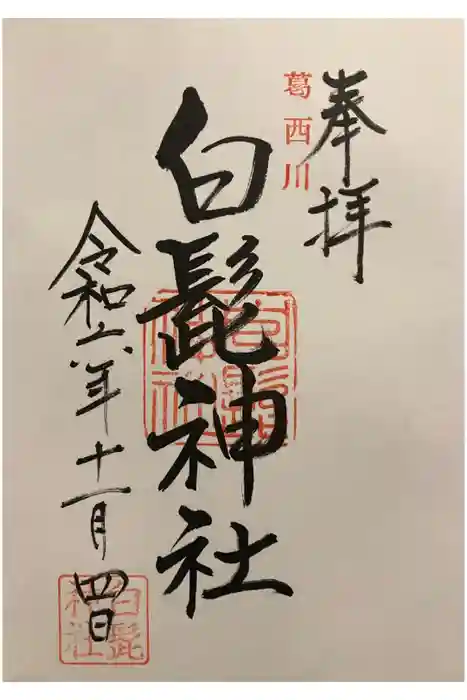 奉拝
葛西川
白髭神社
白髭神社
令和六年十一月四日
白髭神社